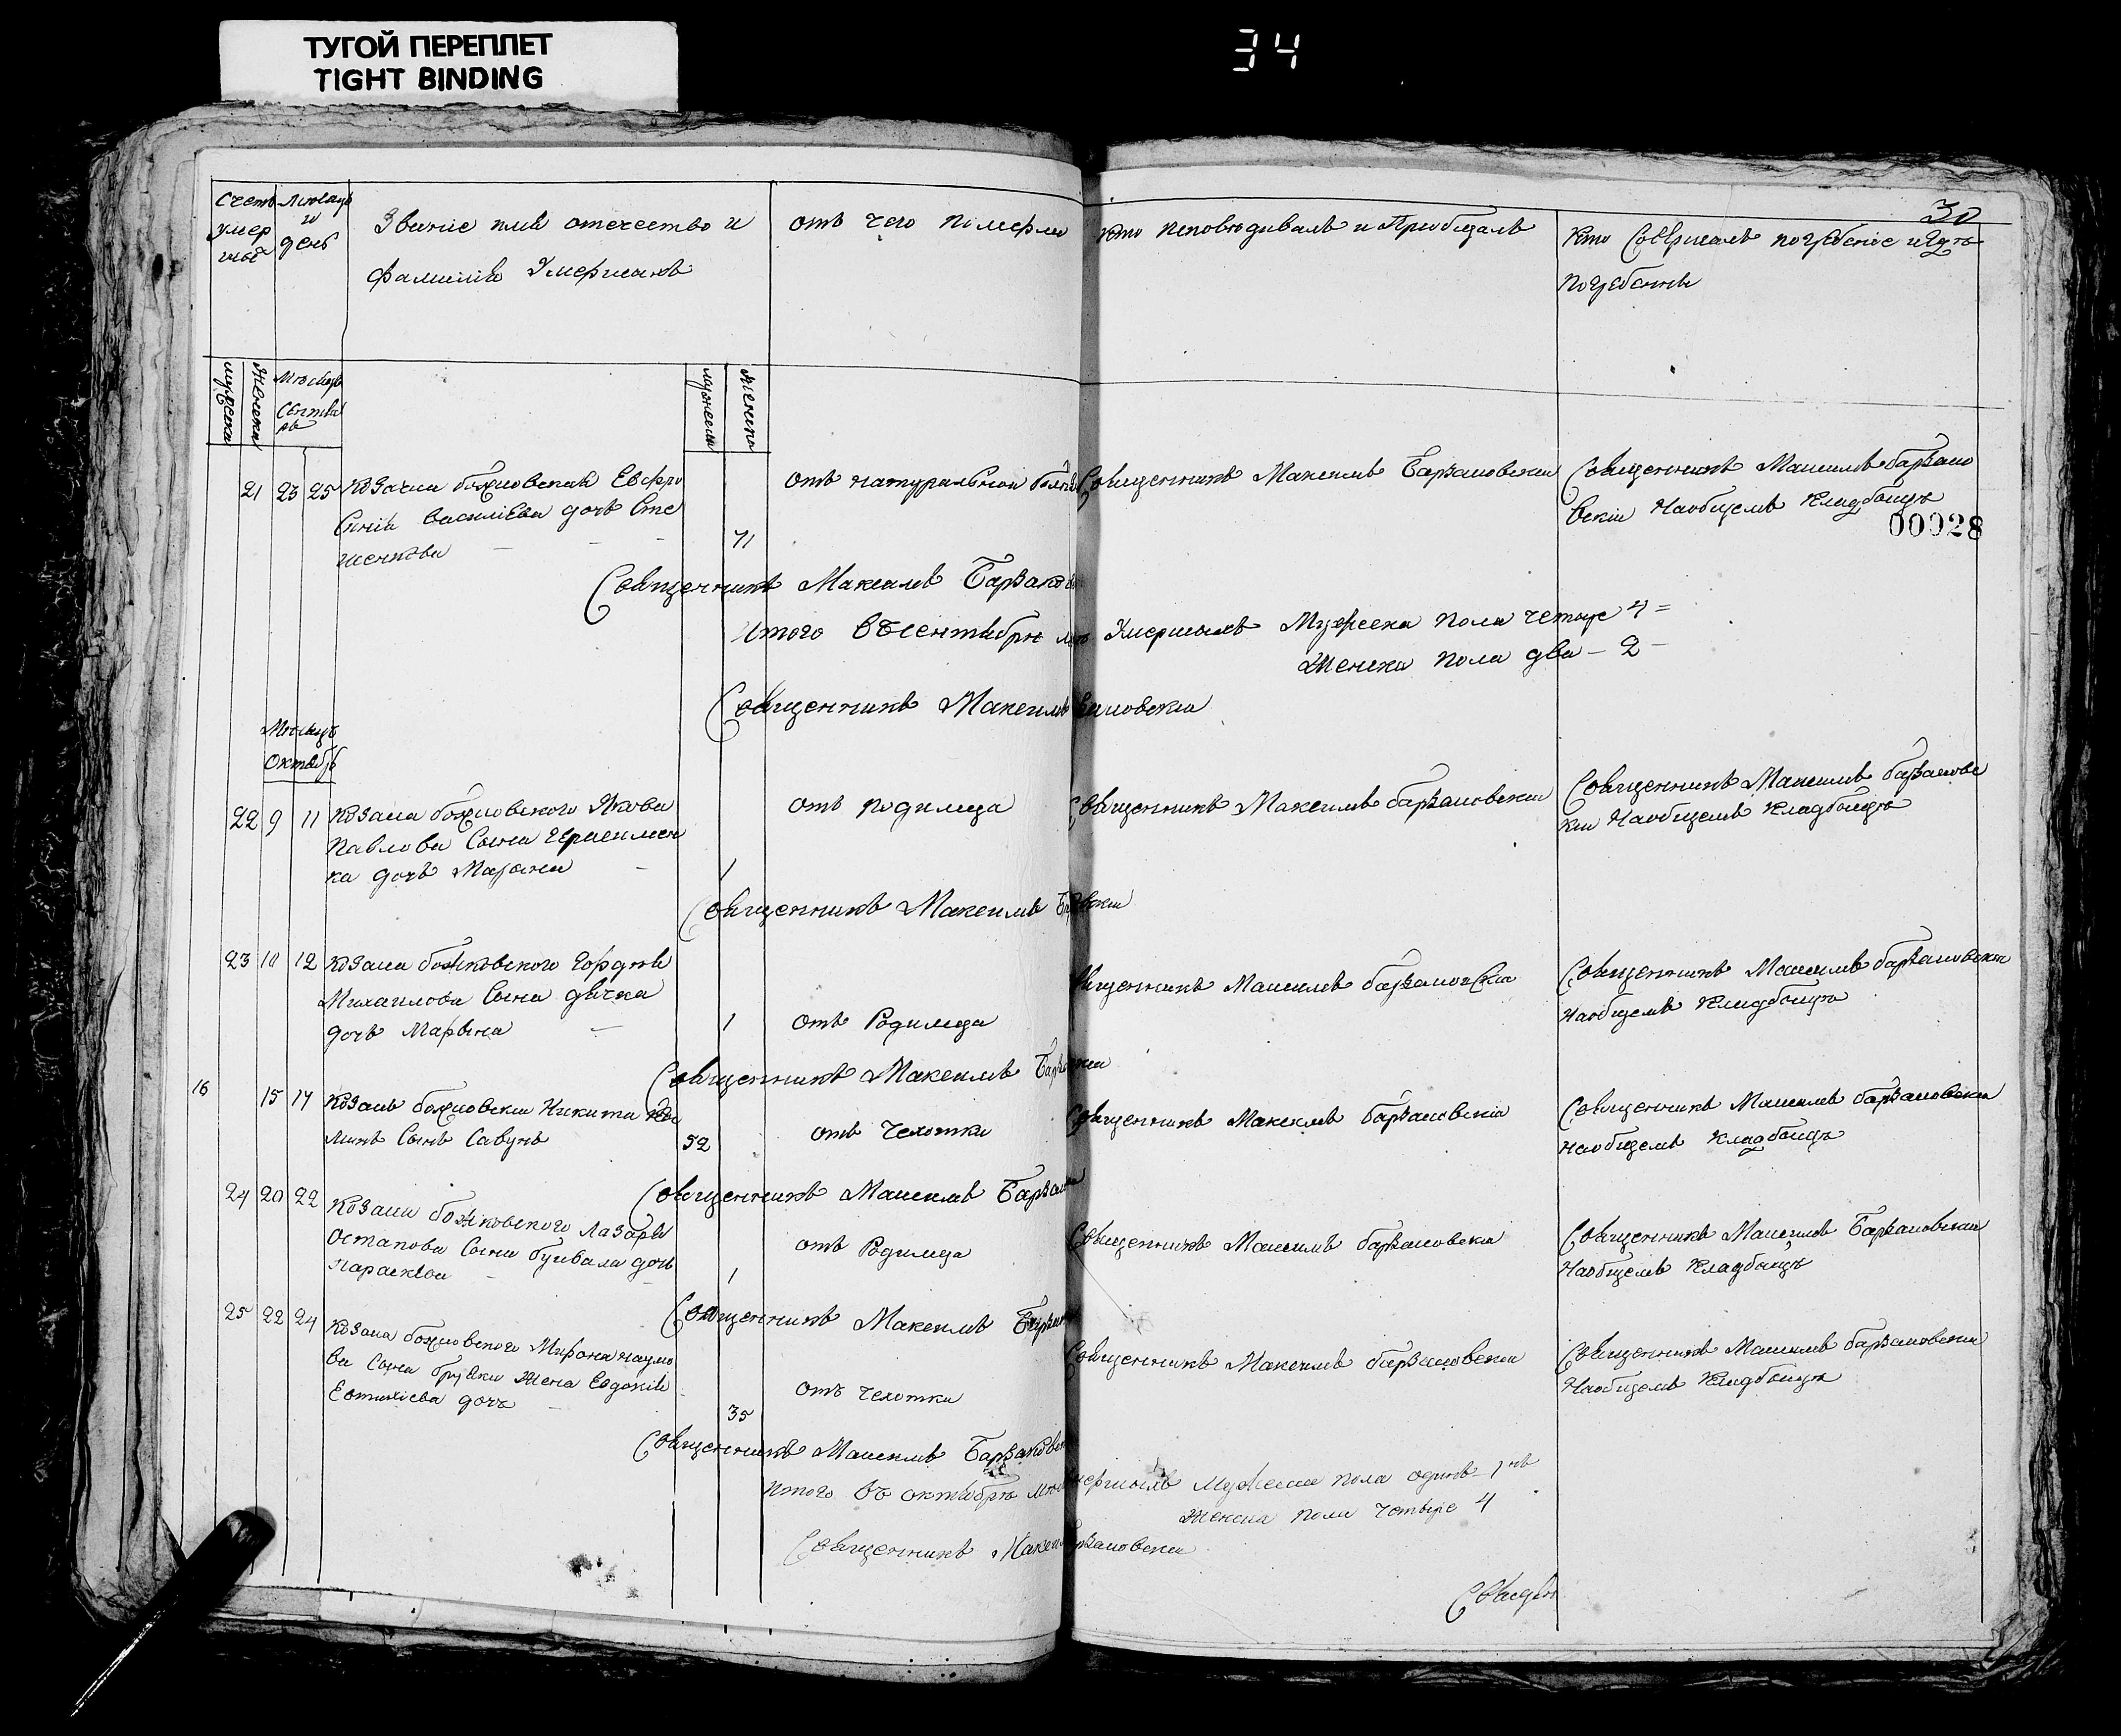 ТУГОЙ ПЕРЕПЛЕТ
TIGHT BINDING
34
30
Счетъ
умер
шыхъ
Месяцъ
и
день
Званіе имя отечество и
фамилія Умершихъ
отъ чего померли
кто исповедивалъ и Приобщалъ
кто Совершалъ погребеніе и где
погребены
мужеска
Женска
Месяцъ
Сентяб
рь
мужеска
женска
21 23 25
козачка божковская Евфро
синія василіева дочь Сте
шенкова
71
отъ натуральной болезни
Священникъ Максимъ Барзаковскій
Священникъ Максимъ барзако
вскій Наобщемъ Кладбищъ
00028
Священникъ Максимъ Барзаков
Итого въ сентябрѣ Умершыхъ Мужеска пола четыре 4 =
Женска пола два - 2 -
Священникъ Максимъ заковскій
Месяцъ
октябрь
22 9 11
козака божковского Якова
Павлова Сына Герасимен
ка дочъ Марына
1
отъ родимца
Священникъ Максимъ барзаковскій
Священникъ Максимъ барзаковс
кій Наобщемъ Кладбищъ
Священникъ Максимъ
23 10 12
козака божковского Гордѣя
Михаилова Сына дячка
дочъ Марына
1
отъ Родимца
Священникъ Максимъ барзаковскій
Священникъ Максимъ барзаковскій
Наобщемъ Кладбищъ
Священникъ Максимъ
16 15 17
козакъ божковскій Никита
минъ Сынъ Савунъ
52
отъ Чехотки
Священникъ Максимъ барзаковскій
Священникъ Максимъ барзаковскій
наобщемъ кладбищъ
Священникъ Максимъ Барзаков
24 20 22
козака божковского Лазаря
Остапова Сына буйвала дочъ
Параскева
1
отъ Родимца
Священникъ Максимъ барзаковскій
Священникъ Максимъ Барзаковскій
Наобщемъ Кладбищъ
Священникъ Максимъ
25 22 24
козака божковского Мирона наумо
ва Сына жена Евдокія
Евтихіева дочъ
35
отъ чехотки
Священникъ Максимъ барзаковскій
Священникъ Максимъ барзаковскій
Наобщемъ Кладбищъ
Священникъ Максимъ Барзаков
Итого въ октябрѣ Мужеска пола одинъ - 1
Женска пола Четыре 4
Священникъ Максимъ заковскій